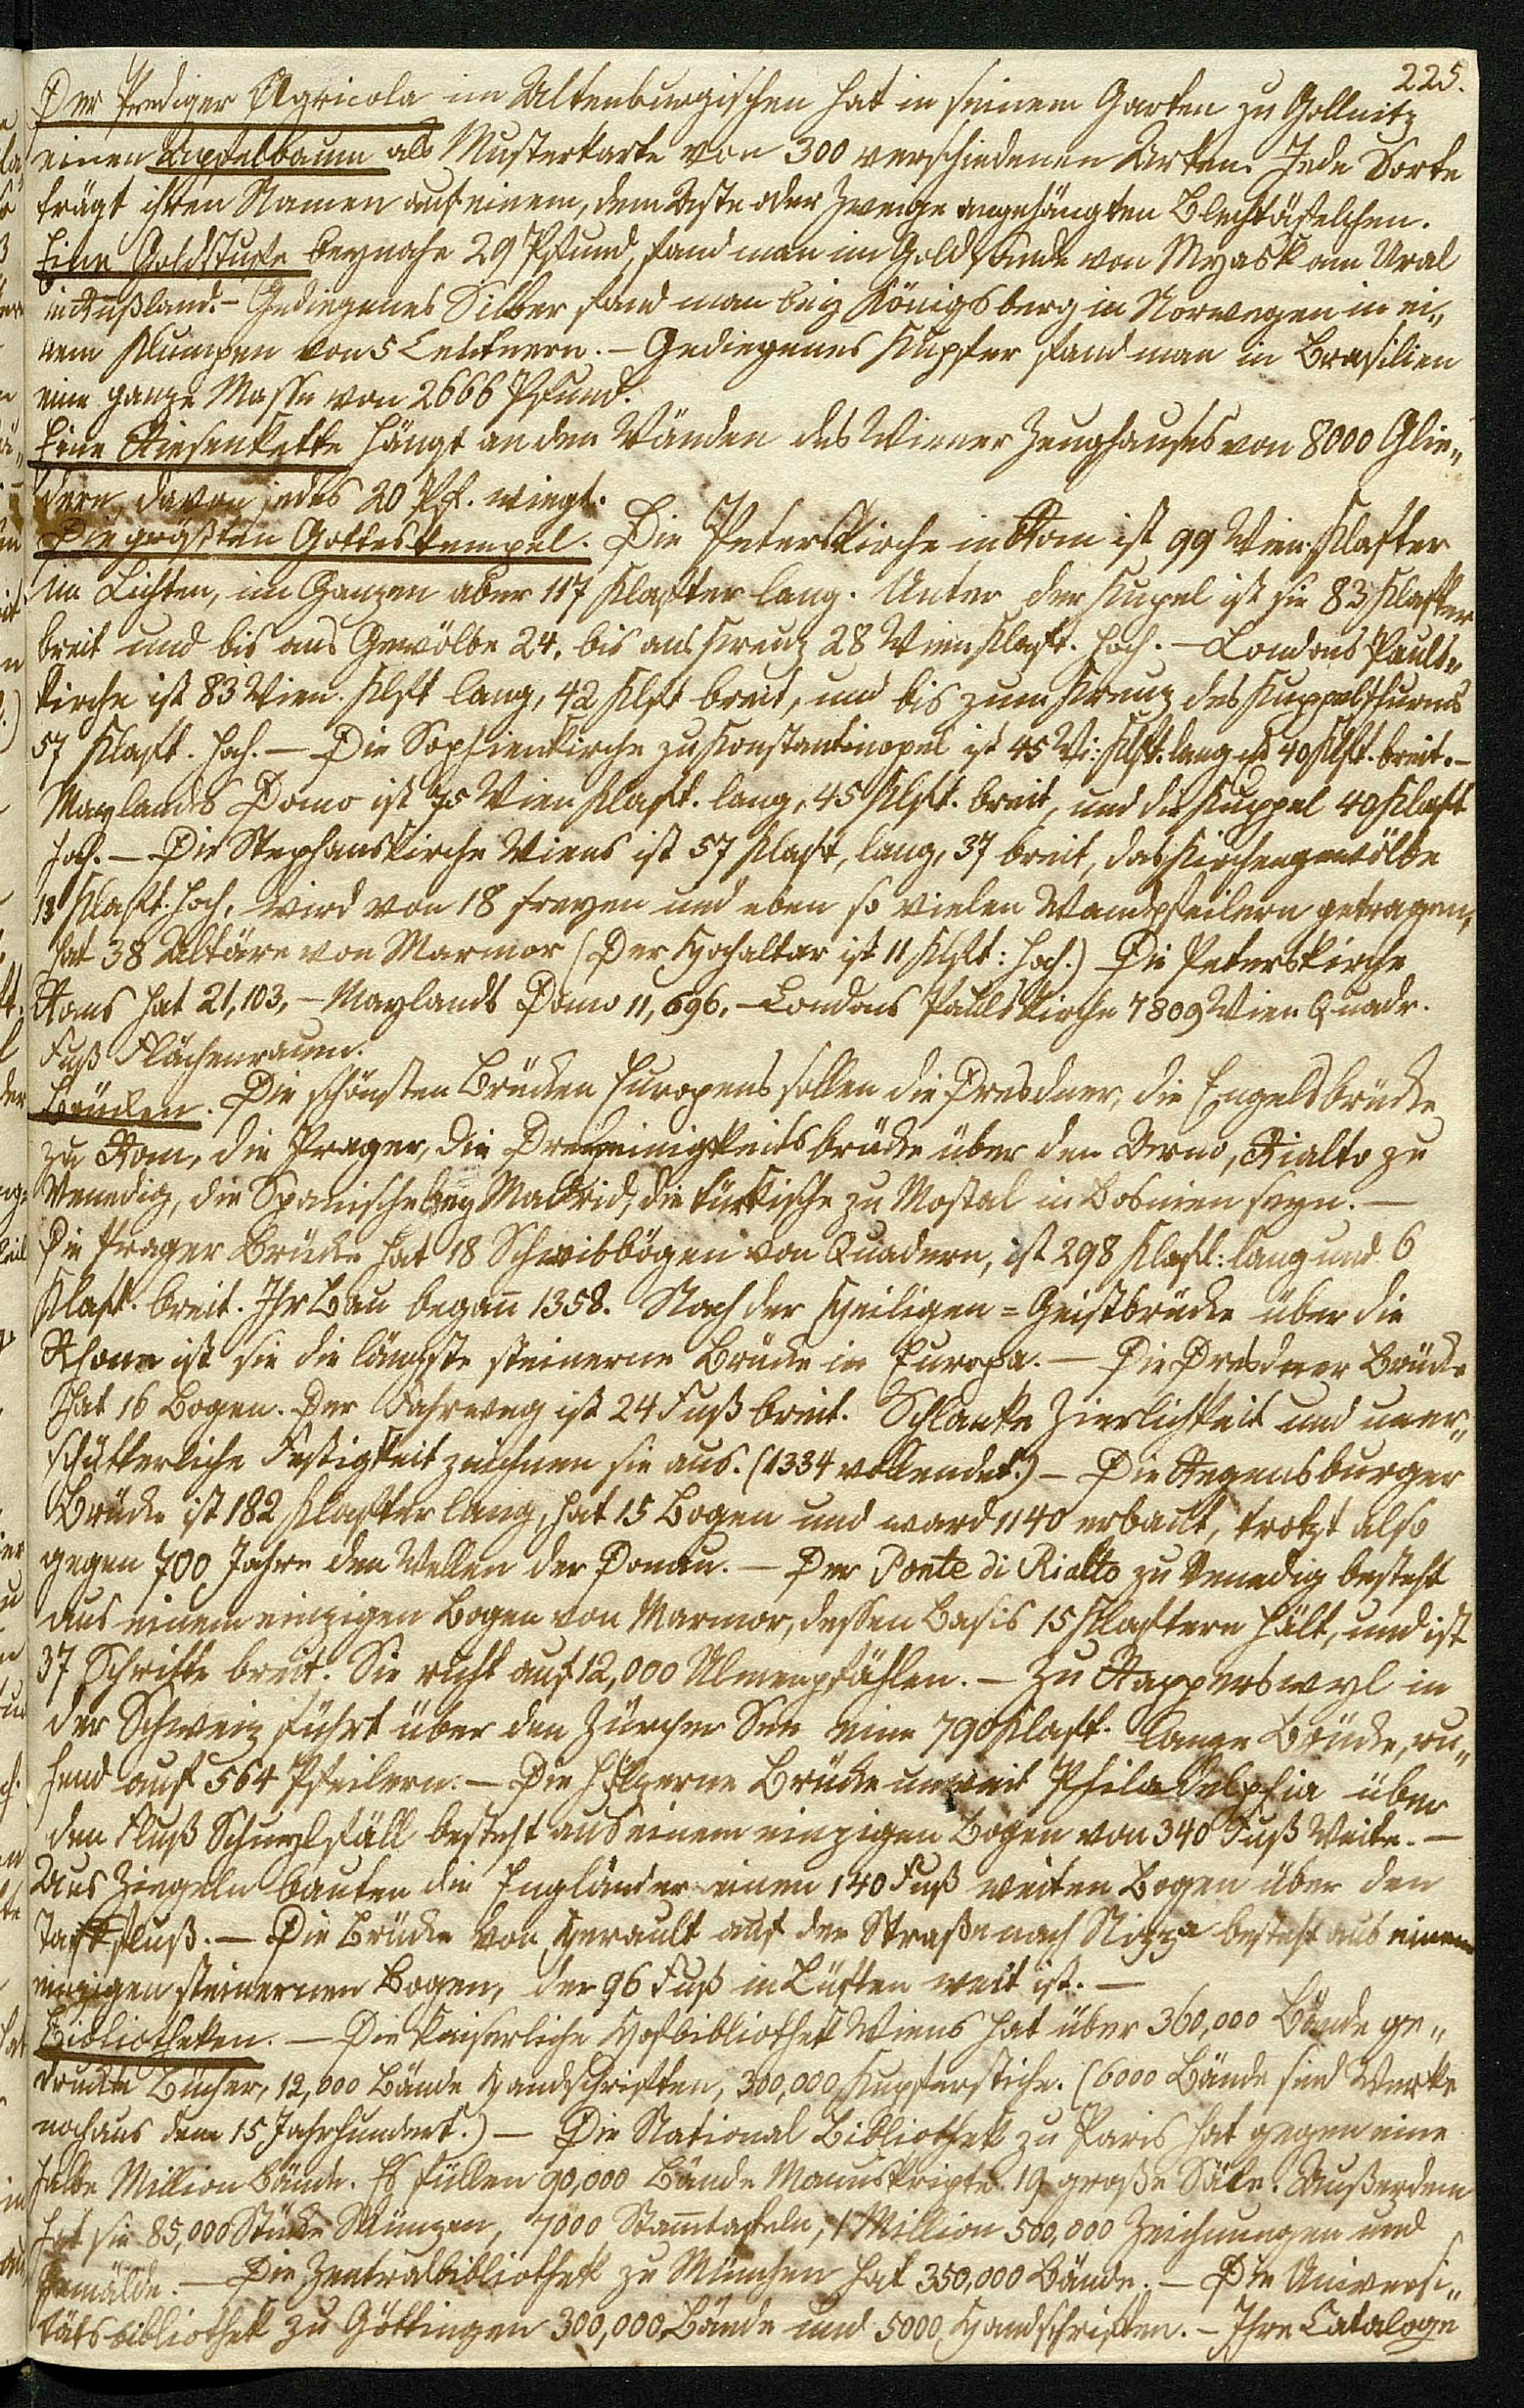 225.
Der Prediger Agricola im Altenburgischen hat in seinem Garten zu Gollnitz
einen Apfelbaum als Musterkarte von 300 verschiedenen Arten. Jede Sorte
trägt ihren Namen auf einem, dem Aste oder Zweige angehängten Blechtäfelchen.
Eine Goldstufe beynahe 29 Pfund, fand man im Goldsande von Myask am Ural
in Rußland. – Gediegenes Silber fand man bey Königsberg in Norwegen in ei„
nem Klumpen von 5 Centnern. – Gediegenes Kupfer fand man in Brasilien
eine ganze Masse von 2666 Pfund.
Eine Riesenkette hängt an den Wänden des Wiener Zeughauses von 8000 Glie„
dern, davon jedes 20 Pf. wiegt.
Die größten Gottestempel. Die Peterskirche in Rom ist 99 Wien. Klafter
im Lichten, im Ganzen aber 117 Klafter lang. Unter der Kupel ist sie 83 Klafter
breit und bis ans Gewölbe 24, bis ans Kreuz 28 Wien Klaft. hoch. – Londons Pauls„
kirche ist 83 Wien. Klft lang, 42 Klft breit, und bis zum Kreuz des Kuppelthurms
57 Klaft. hoch. – Die Sophienkirche zu Konstantinopel ist 45 Wi: Klft. lang u 40 Klft. breit. –
Maylands Domo ist 75 Wien Klaft. lang, 45 Klft. breit, und die Kuppel 40 Klaft
hoch. – Die Stephanskirche Wiens ist 57 Klaft, lang, 37 breit, das Kirchengewölbe
13 Klaft. hoch, wird von 18 freyen und eben so vielen Wandpfeilern getragen,
hat 38 Altäre von Marmor (Der Hochaltar ist 11 Klft: hoch.) Die Peterskirche
Roms hat 21,103, – Maylands Domo 11,696, – Londons Paulskirche 7809 Wien Quadr.
Fuß Flächenraum.
Brücken. Die schönsten Brücken Europens sollen die Dresdner, die Engelsbrücke
zu Rom, die Prager, die Dreyeinigkeitsbrücke über den Arno, Rialto zu
Venedig, die Spanische bey Madrid, die türkische zu Mostal in Bosnien seyn. –
Die Prager Brücke hat 18 Schwibbögen von Quadern, ist 298 Klaft: lang und 6
Klaft. breit. Ihr Bau began̄ 1358. Nach der Heiligen=Geistbrücke über die
Rhone ist sie die längste steinerne Brücke in Europa. – Die Dresdner Brücke
hat 16 Bogen. Der Fahrweg ist 24 Fuß breit. Schlanke Zierlichkeit und uner„
schütterliche Festigkeit zeichnen sie aus. (1334 vollendet.) – Die Regensburger
Brücke ist 182 Klafter lang, hat 15 Bogen und ward 1140 erbaut, trotzt also
gegen 700 Jahre den Wellen der Donau. – Der Ponte di Rialto zu Venedig besteht
aus einem einzigen Bogen von Marmor, dessen Basis 15 Klaftern hält, und ist
37 Schritte breit. Sie ruht auf 12,000 Ulmenpfählen. – Zu Rapperswyl in
der Schweiz führt über den Zürcher See eine 790 Klaft. lange Brücke, ru„
hend auf 564 Pfeilern. – Die hölzerne Brücke unweit Philadelphia über
den Fluß Schuylfäll besteht aus einem einzigen Bogen von 340 Fuß Weite. –
Aus Ziegeln bauten die Engländer einen 140 Fuß weiten Bogen über den
Taffluß. – Die Brücke von Herault auf der Straße nach Nizza besteht aus einem
einzigen steinernen Bogen, der 96 Fuß in Lüften weit ist. –
Bibliotheken. – Die kaiserliche Hofbibliothek Wiens hat über 360,000 Bände ge„
druckte Bücher, 12,000 Bände Handschriften, 300,000 Kupferstiche. (6000 Bände sind Werke
noch aus dem 15 Jahrhundert.) – Die National Bibliothek zu Paris hat gegen eine
halbe Million Bände. Es füllen 90,000 Bände Manuskripte 19 große Säle. Außerdem
hat sie 85,000 Stücke Münzen, 7000 Stam̄tafeln, 1 Million 500,000 Zeichnungen und
Gemälde. – Die Zentralbibliothek zu München hat 350,000 Bände. – Die Universi„
tätsbibliothek zu Göttingen 300,000 Bände und 5000 Handschriften. – Ihre Cataloge